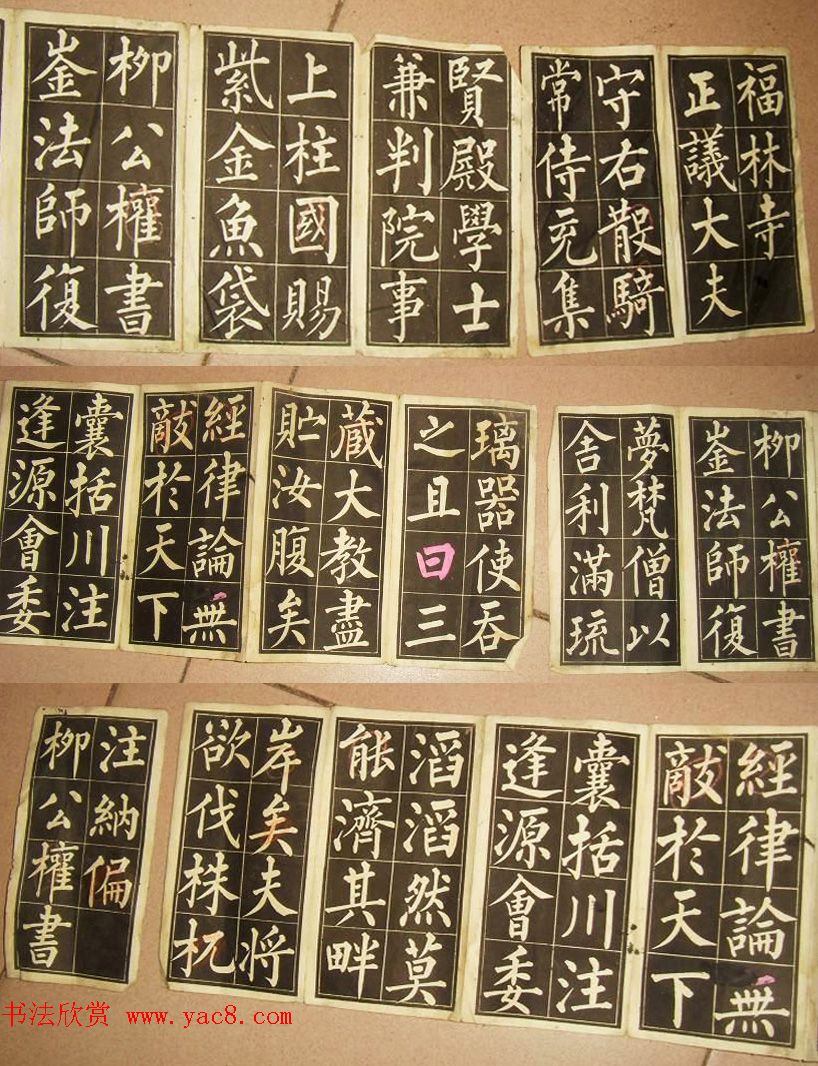 福林寺
正議大夫
守右散騎
常侍充集
賢殿學士
兼判院事
上柱國賜
紫金魚袋
柳公權書
崟法師復
柳公權書
崟法師復
夢梵僧以
舍利滿琉
璃器使吞
之且曰三
蔵大教盡
貯汝腹矣
經律論無
敵於天下
囊括川注
逢源會委
經律論無
敵於天下
囊括川注
逢源會委
滔滔然莫
能濟其畔
岸矣夫将
欲伐株杌
注納偏
柳公權書
书法欣赏 www.yac8.com